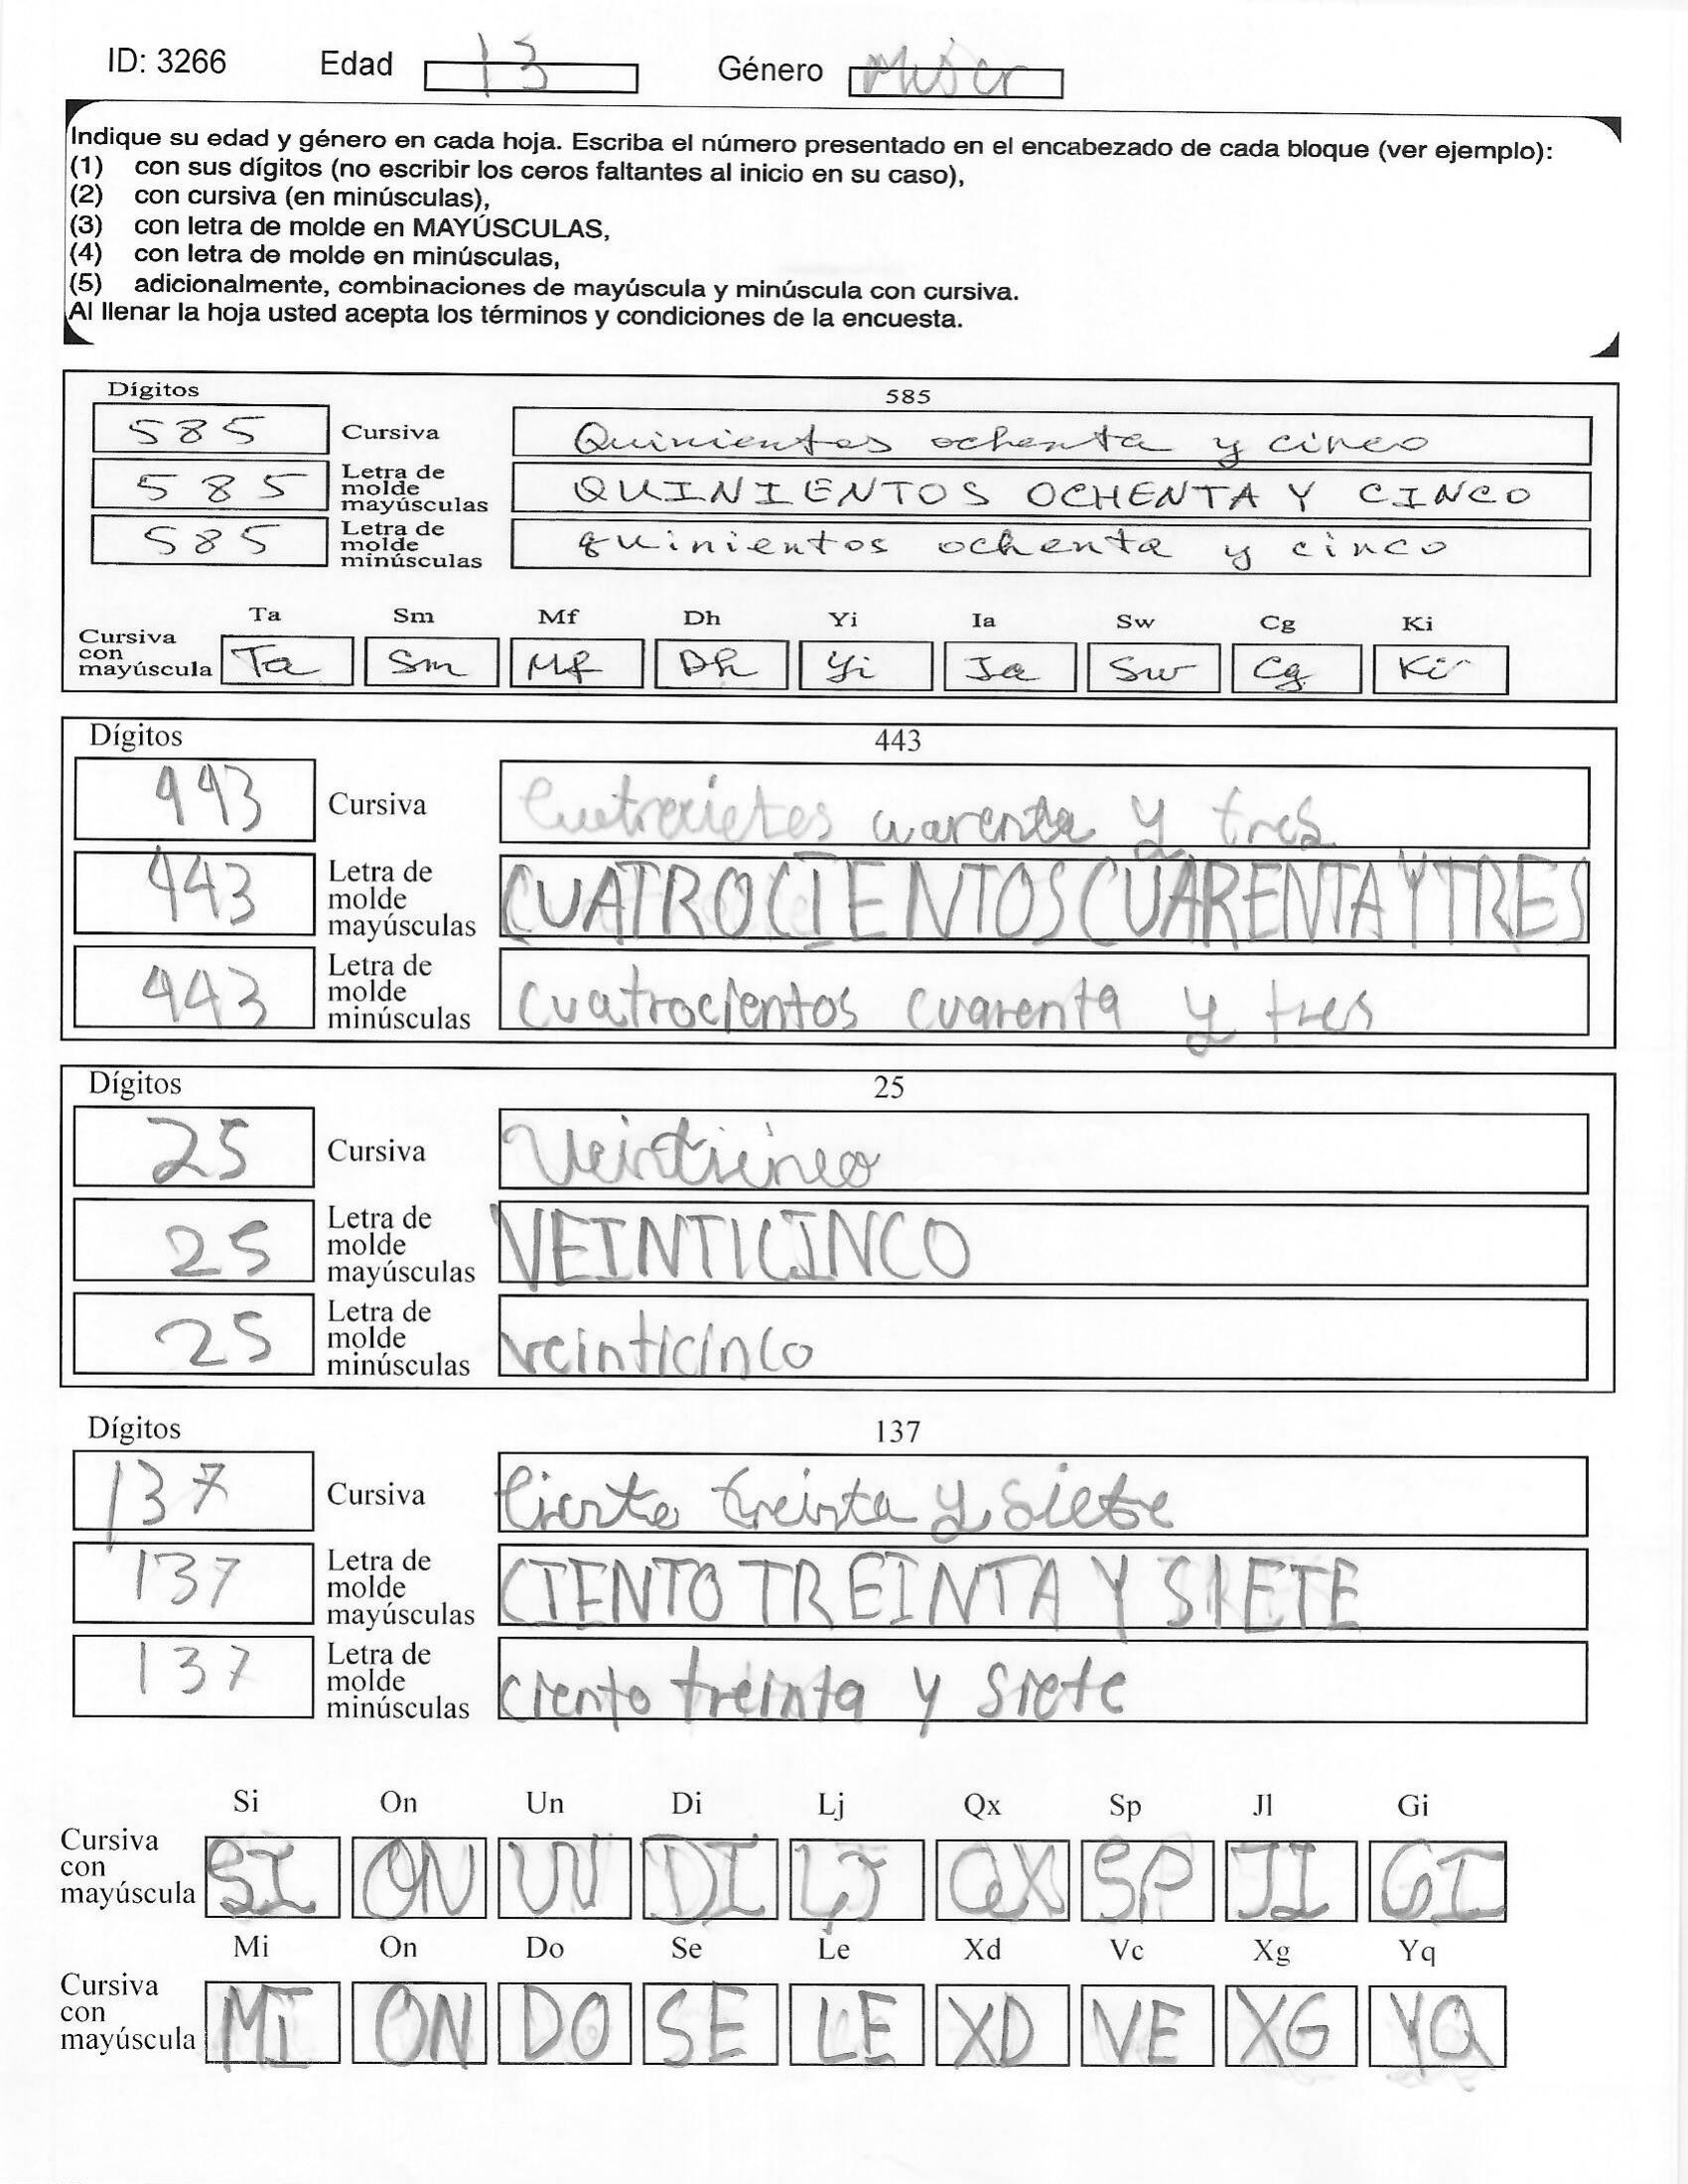 ID: 3266 Edad 13 Género
Indique su edad y género en cada hoja. Escriba el número presentado en el encabezado de cada bloque (ver ejemplo):
(1) con sus dígitos (no escribir los ceros faltantes al inicio en su caso),
(2) con cursiva (en minúsculas),
(3) con letra de molde en MAYÚSCULAS,
(4) con letra de molde en minúsculas,
(5) adicionalmente, combinaciones de mayúscula y minúscula con cursiva.
Al llenar la hoja usted acepta los términos y condiciones de la encuesta.
Dígitos 585
585 Cursiva Quinientos ochenta y cinco
585 Letra de molde mayúsculas QUINIENTOS OCHENTA Y CINCO
585 Letra de molde minúsculas quinientos ochenta y cinco
Ta Sm Mf Dh Yi Ia Sw Cg Ki
Cursiva con mayúscula Ta Sm Mf Dh Yi Ia Sw Cg Ki
Dígitos 443
443 Cursiva cuarenta y tres
443 Letra de molde mayúsculas CUATROCIENTOS CUARENTA Y TRES
443 Letra de molde minúsculas cuatrocientos cuarenta y tres
Dígitos 25
25 Cursiva Veinticinco
25 Letra de molde mayúsculas VEINTICINCO
25 Letra de molde minúsculas veinticinco
Dígitos 137
137 Cursiva Ciento treinta y siete
137 Letra de molde mayúsculas CIENTO TREINTA Y SIETE
137 Letra de molde minúsculas ciento treinta y siete
Si On Un Di Lj Qx Sp Jl Gi
Cursiva con mayúscula SI ON UN DI LJ QX SP JI GI
Mi On Do Se Le Xd Vc Xg Yq
Cursiva con mayúscula MI ON DO SE LE XD VE XG YQ